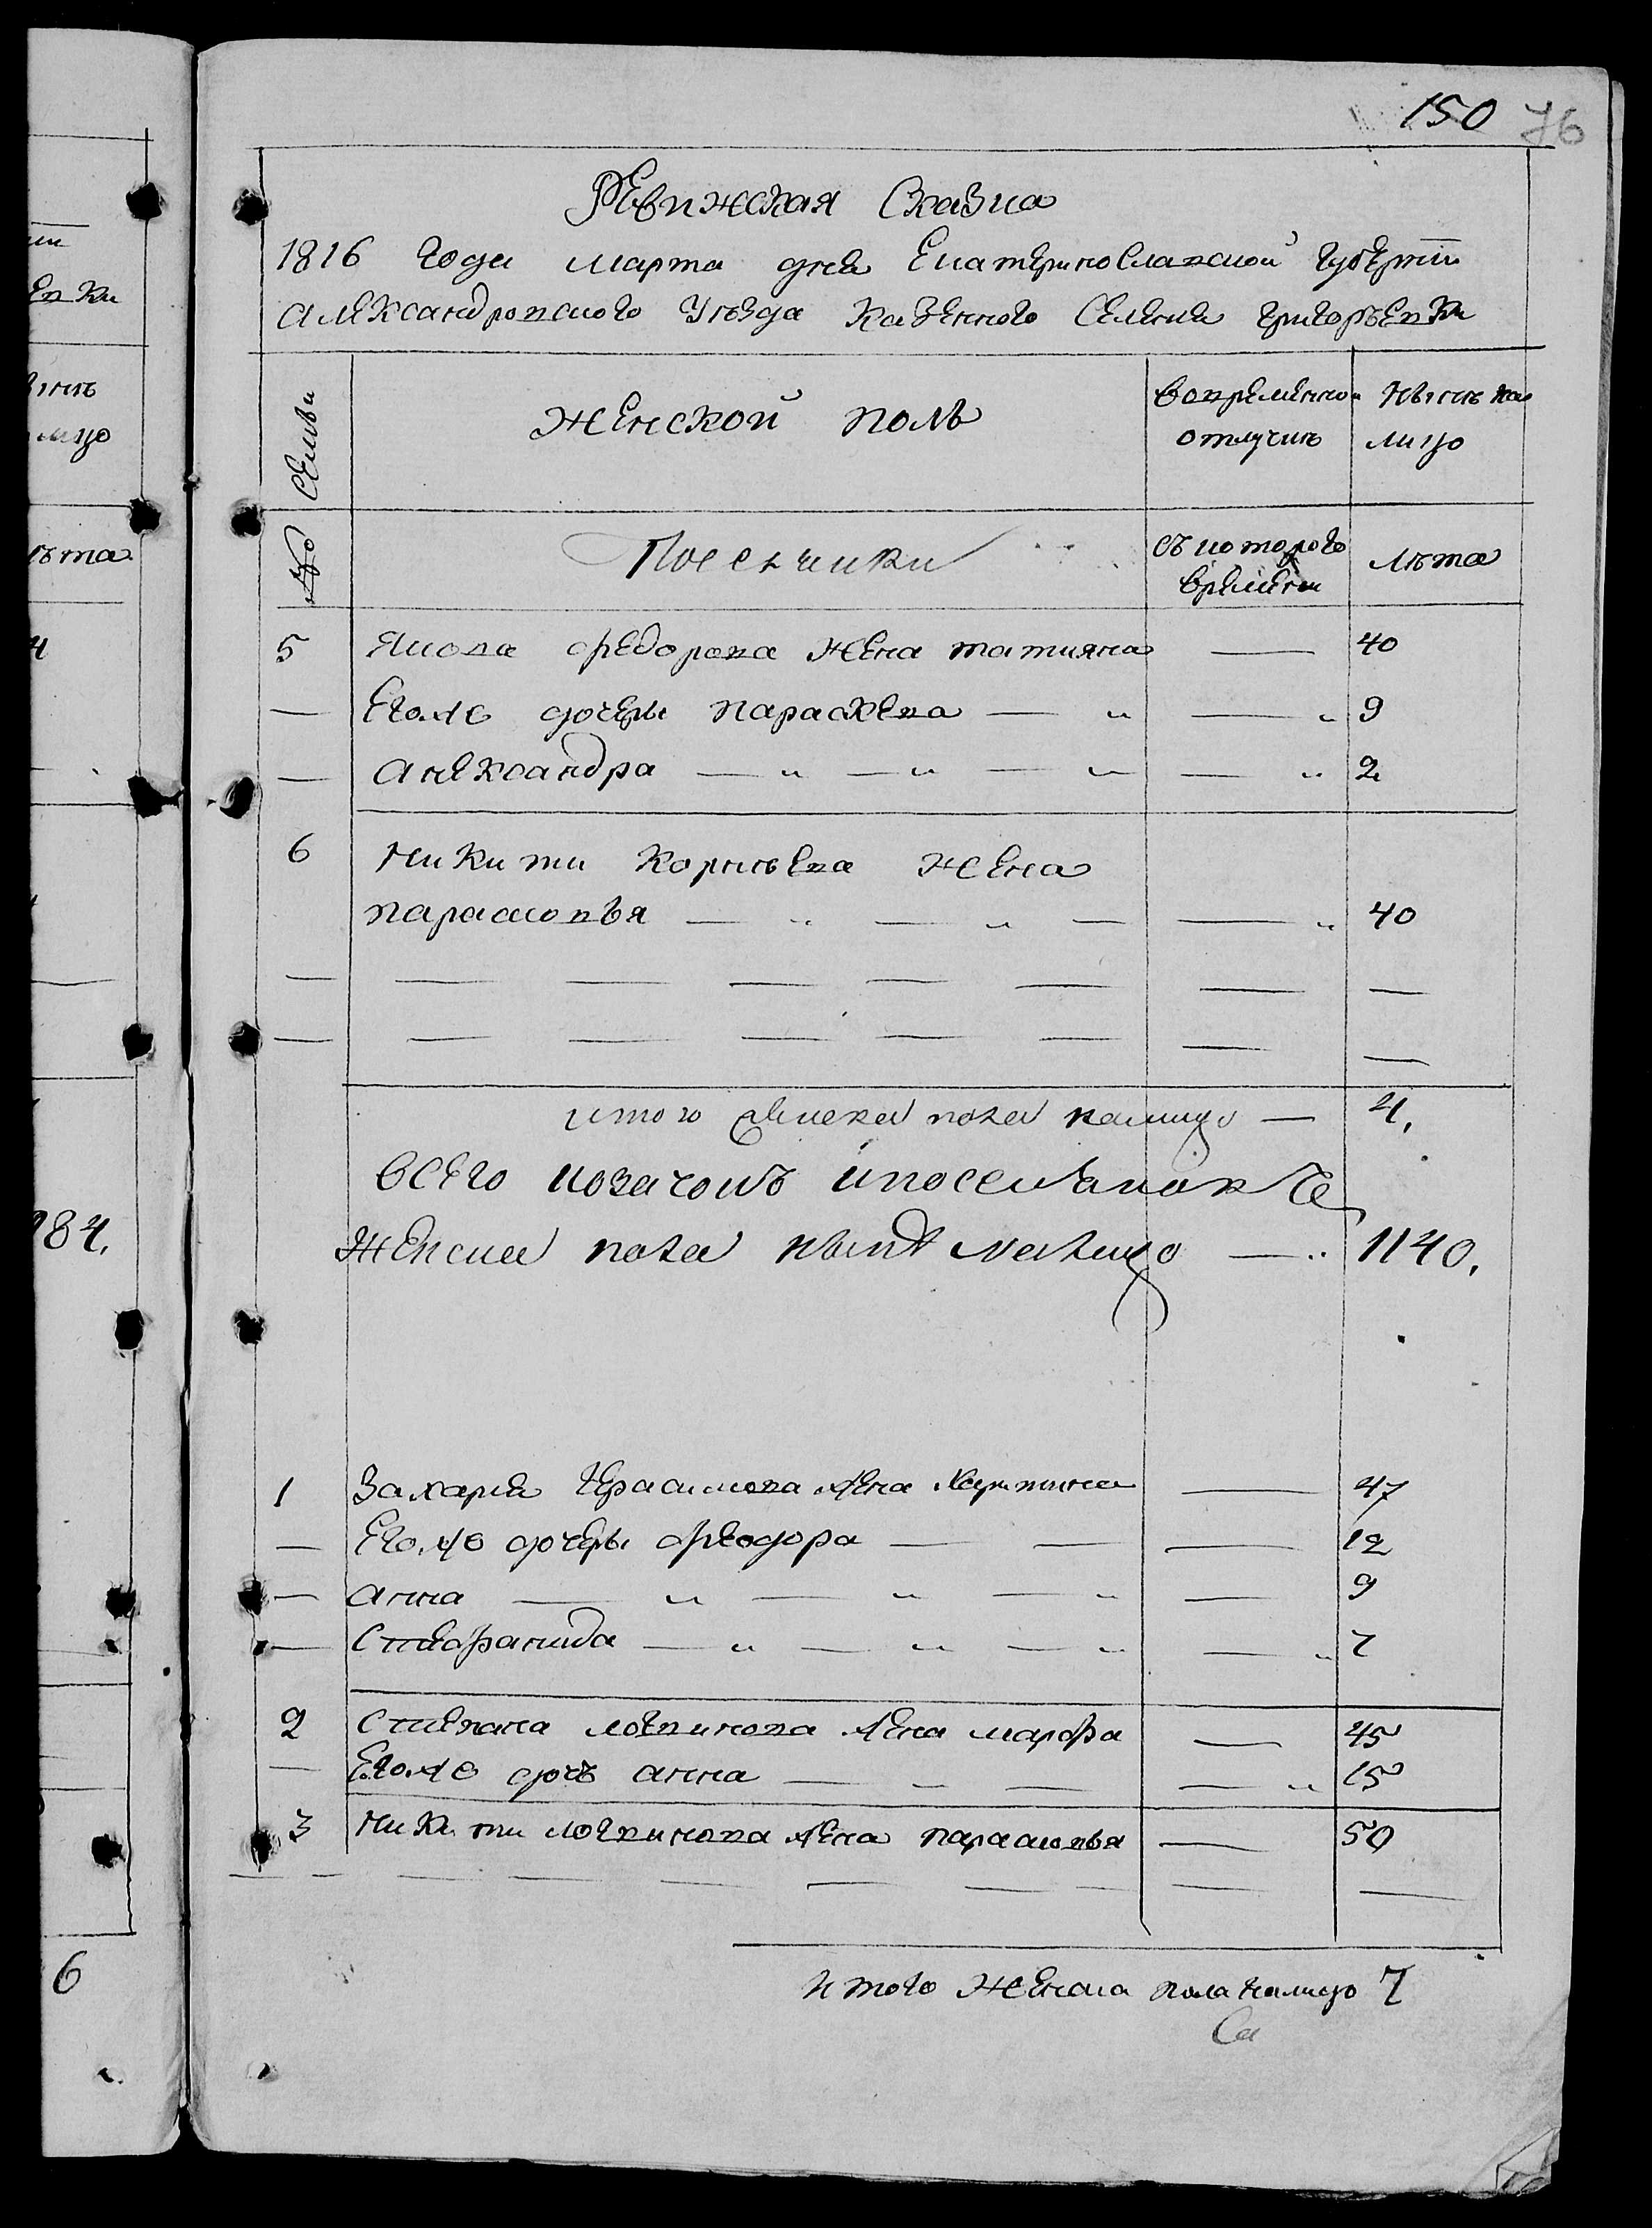 150 76
Ревижская Сказка
1816 года марта дня Екатеринославской губернїи
александровского Уѣзда казенного Селения григорьевки
Семьи
женской полъ
вовременной
отлучкѣ
Нынѣ на
лицо
№о
Поселчики
съ которого
времени
лѣта
5 Якова федорова жена татияна — 40
— Его же дочери параскева — „ — „ 9
— александра — „ — „ — „ — „ 2
6 никити корнѣева жена
парасковья — „ — „ — — „ 40
итого женска пола налицо — 4.
всего козачокъ и
женска пола нынѣ налицо — „ 1140.
1 Захария Герасимова жена — 47
— Его же дочери феодора — — — 12
— анна — „ — „ — „ — 9
— Стиефанида — „ — „ — „ — „ 7
2 Стиепана логвинова жена марфа — 45
— Его же дочь анна — „ — — „ 15
3 никити логвинова жена парасковья — 50
итого женска пола налицо 7
284.
6